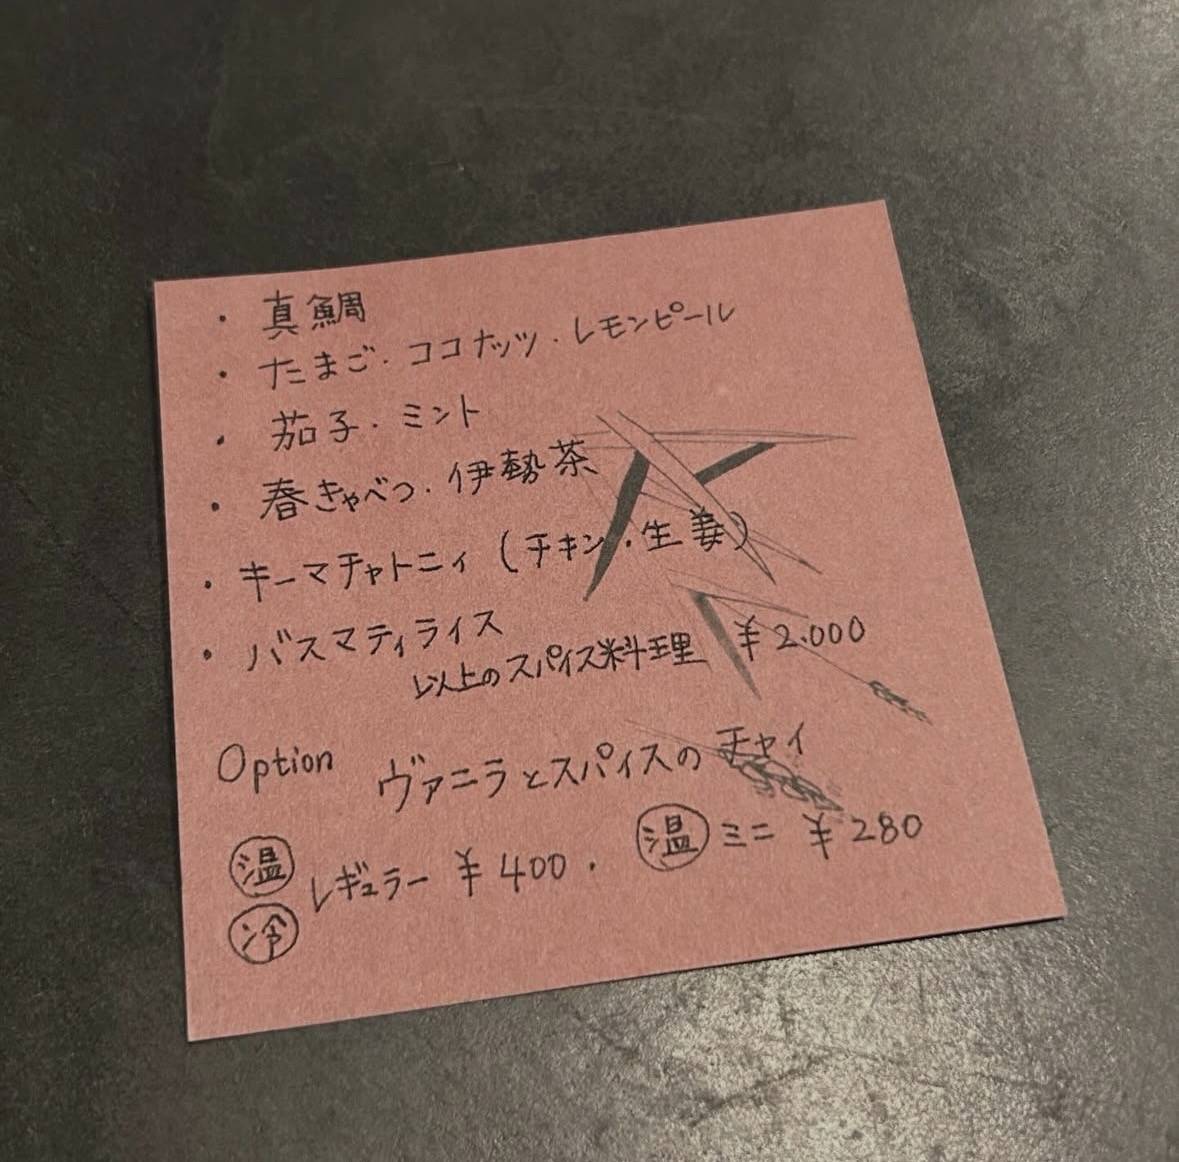 ・真鯛
・たまご・ココナッツ・レモンピール
・茄子・ミント
・春きゃべつ・伊勢茶
・キーマチャトニィ（チキン・生姜）
・バスマティライス
以上のスパイス料理 ¥2.000
Option ヴァニラとスパイスのチャイ
温 冷 レギュラー ¥400・温 ミニ ¥280